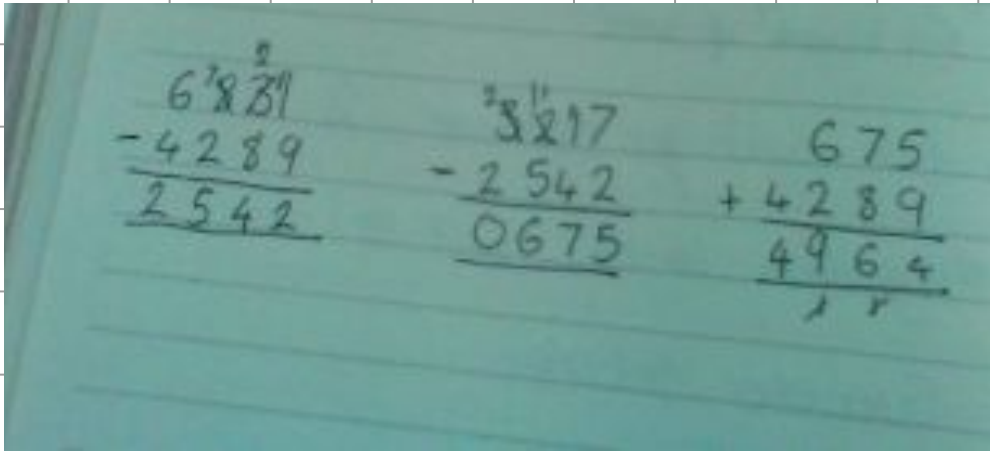 6831
- 4289
2542
3217
- 2542
0675
675
+ 4289
4964